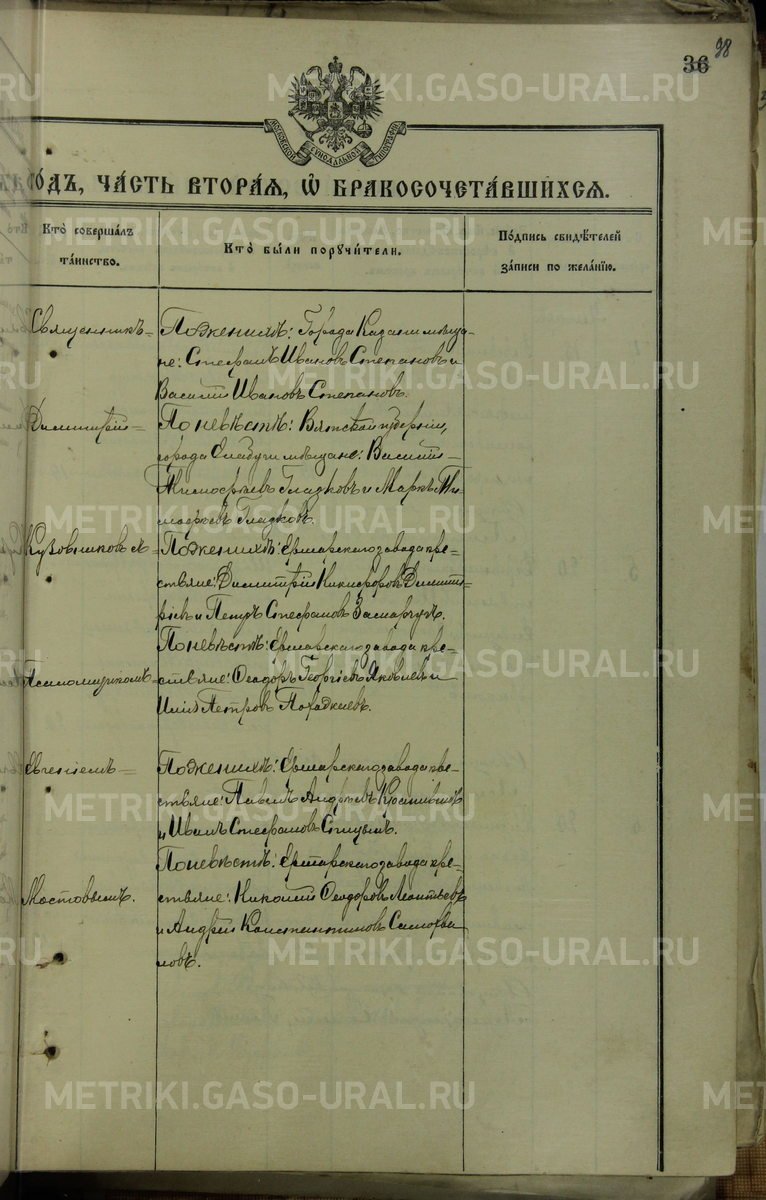 98
36
МОСКОВСКОЙ СУНОДАЛЬНОЙ ТИПОГРАФІИ
ГО́ДЪ, ЧА́СТЬ ВТОРА́Я, Ѽ БРАКОСОЧЕТА́ВШИХСЯ.
Кто̀ соверша́лъ
та́инство.
Кто̀ бы́ли поручи́тели.
По́дпись свидѣ́телей
за́писи по жела́нію.
Священникъ
Димитрій
Кузовниковъ
Псаломщикомъ
Евгеніемъ
Мостовымъ.
По женихѣ: Города Казани мѣща-
не: Стефанъ Ивановъ Степановъ и
Василій Ивановъ Степановъ.
По невѣстѣ: Вятской губерніи,
города Елабуги мѣщане: Василій
Тимофѣевъ Глазковъ и Маркъ Ти-
мофѣевъ Глазковъ.
По женихѣ: Ертарскаго завода кре-
стьяне: Димитрій Никифоровъ Димит-
ріевъ и Петръ Стефановъ
По невѣстѣ: Ертарскаго завода кре-
стьяне: Ѳеодоръ Георгіевъ Яковлевъ и
Петровъ
По женихѣ: Ертарскаго завода кре-
стьяне: Павелъ Андреевъ
и Иванъ Стефановъ
По невѣстѣ: Ертарскаго завода кре-
стьяне: Николай Ѳеодоровъ Леонтьевъ
и Андрей Константиновъ Самохва-
ловъ.
METRIKI.GASO-URAL.RU